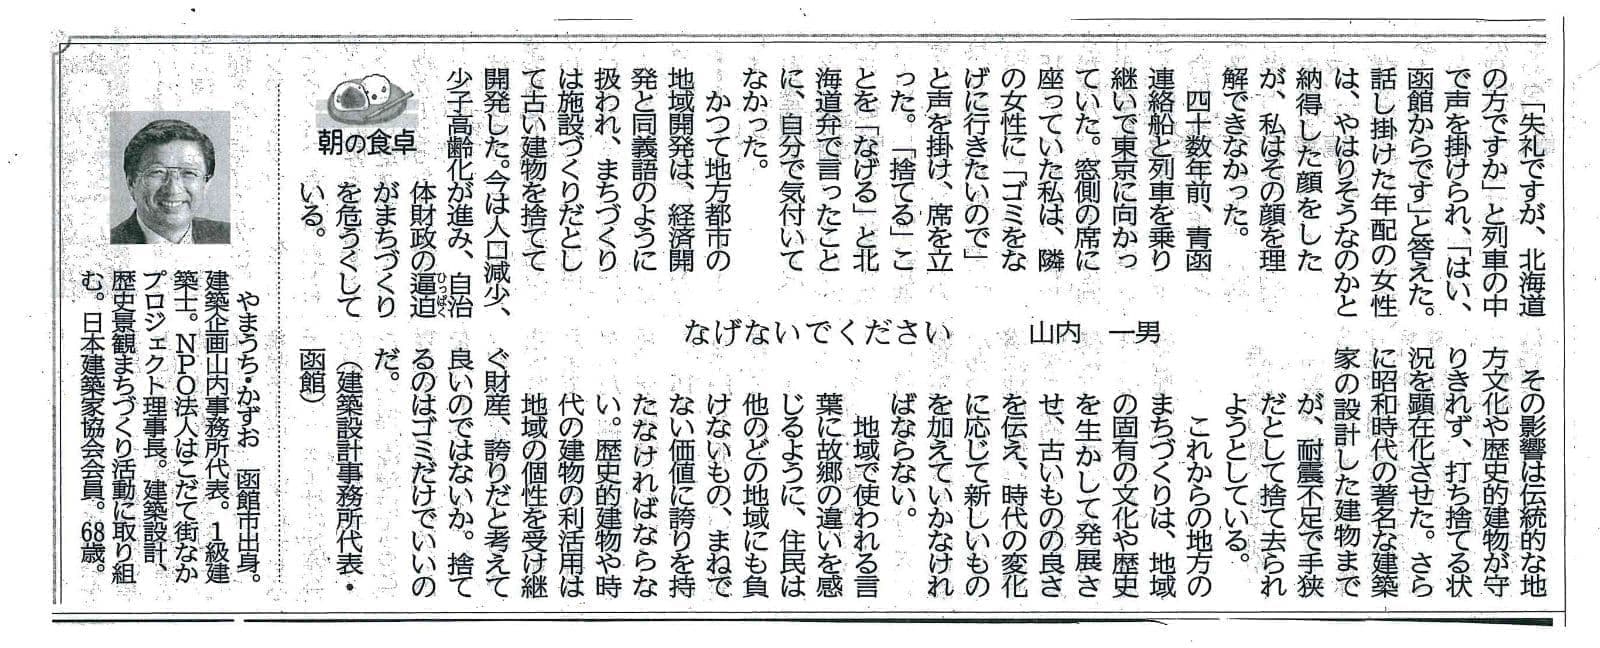 なげないでください　　山内　一男
「失礼ですが、北海道
の方ですか」と列車の中
で声を掛けられ、「はい、
函館からです」と答えた。
話し掛けた年配の女性
は、やはりそうなのかと
納得した顔をした
が、私はその顔を理
解できなかった。
四十数年前、青函
連絡船と列車を乗り
継いで東京に向かっ
ていた。窓側の席に
座っていた私は、隣
の女性に「ゴミをな
げに行きたいので」
と声を掛け、席を立
った。「捨てる」こ
とを「なげる」と北
海道弁で言ったこと
に、自分で気付いて
なかった。
かつて地方都市の
地域開発は、経済開
発と同義語のように
扱われ、まちづくり
は施設づくりだとし
て古い建物を捨てて
開発した。今は人口減少、
少子高齢化が進み、自治
体財政の逼迫
ひっぱく
がまちづくり
を危うくして
いる。
その影響は伝統的な地
方文化や歴史的建物が守
りきれず、打ち捨てる状
況を顕在化させた。さら
に昭和時代の著名な建築
家の設計した建物まで
が、耐震不足で手狭
だとして捨て去られ
ようとしている。
これからの地方の
まちづくりは、地域
の固有の文化や歴史
を生かして発展さ
せ、古いものの良さ
を伝え、時代の変化
に応じて新しいもの
を加えていかなけれ
ばならない。
地域で使われる言
葉に故郷の違いを感
じるように、住民は
他のどの地域にも負
けないもの、まねで
ない価値に誇りを持
たなければならな
い。歴史的建物や時
代の建物の利活用は
地域の個性を受け継
ぐ財産、誇りだと考えて
良いのではないか。捨て
るのはゴミだけでいいの
だ。
（建築設計事務所代表・
函館）
朝の食卓
やまうち・かずお　函館市出身。
建築企画山内事務所代表。１級建
築士。ＮＰＯ法人はこだて街なか
プロジェクト理事長。建築設計、
歴史景観まちづくり活動に取り組
む。日本建築家協会会員。68歳。